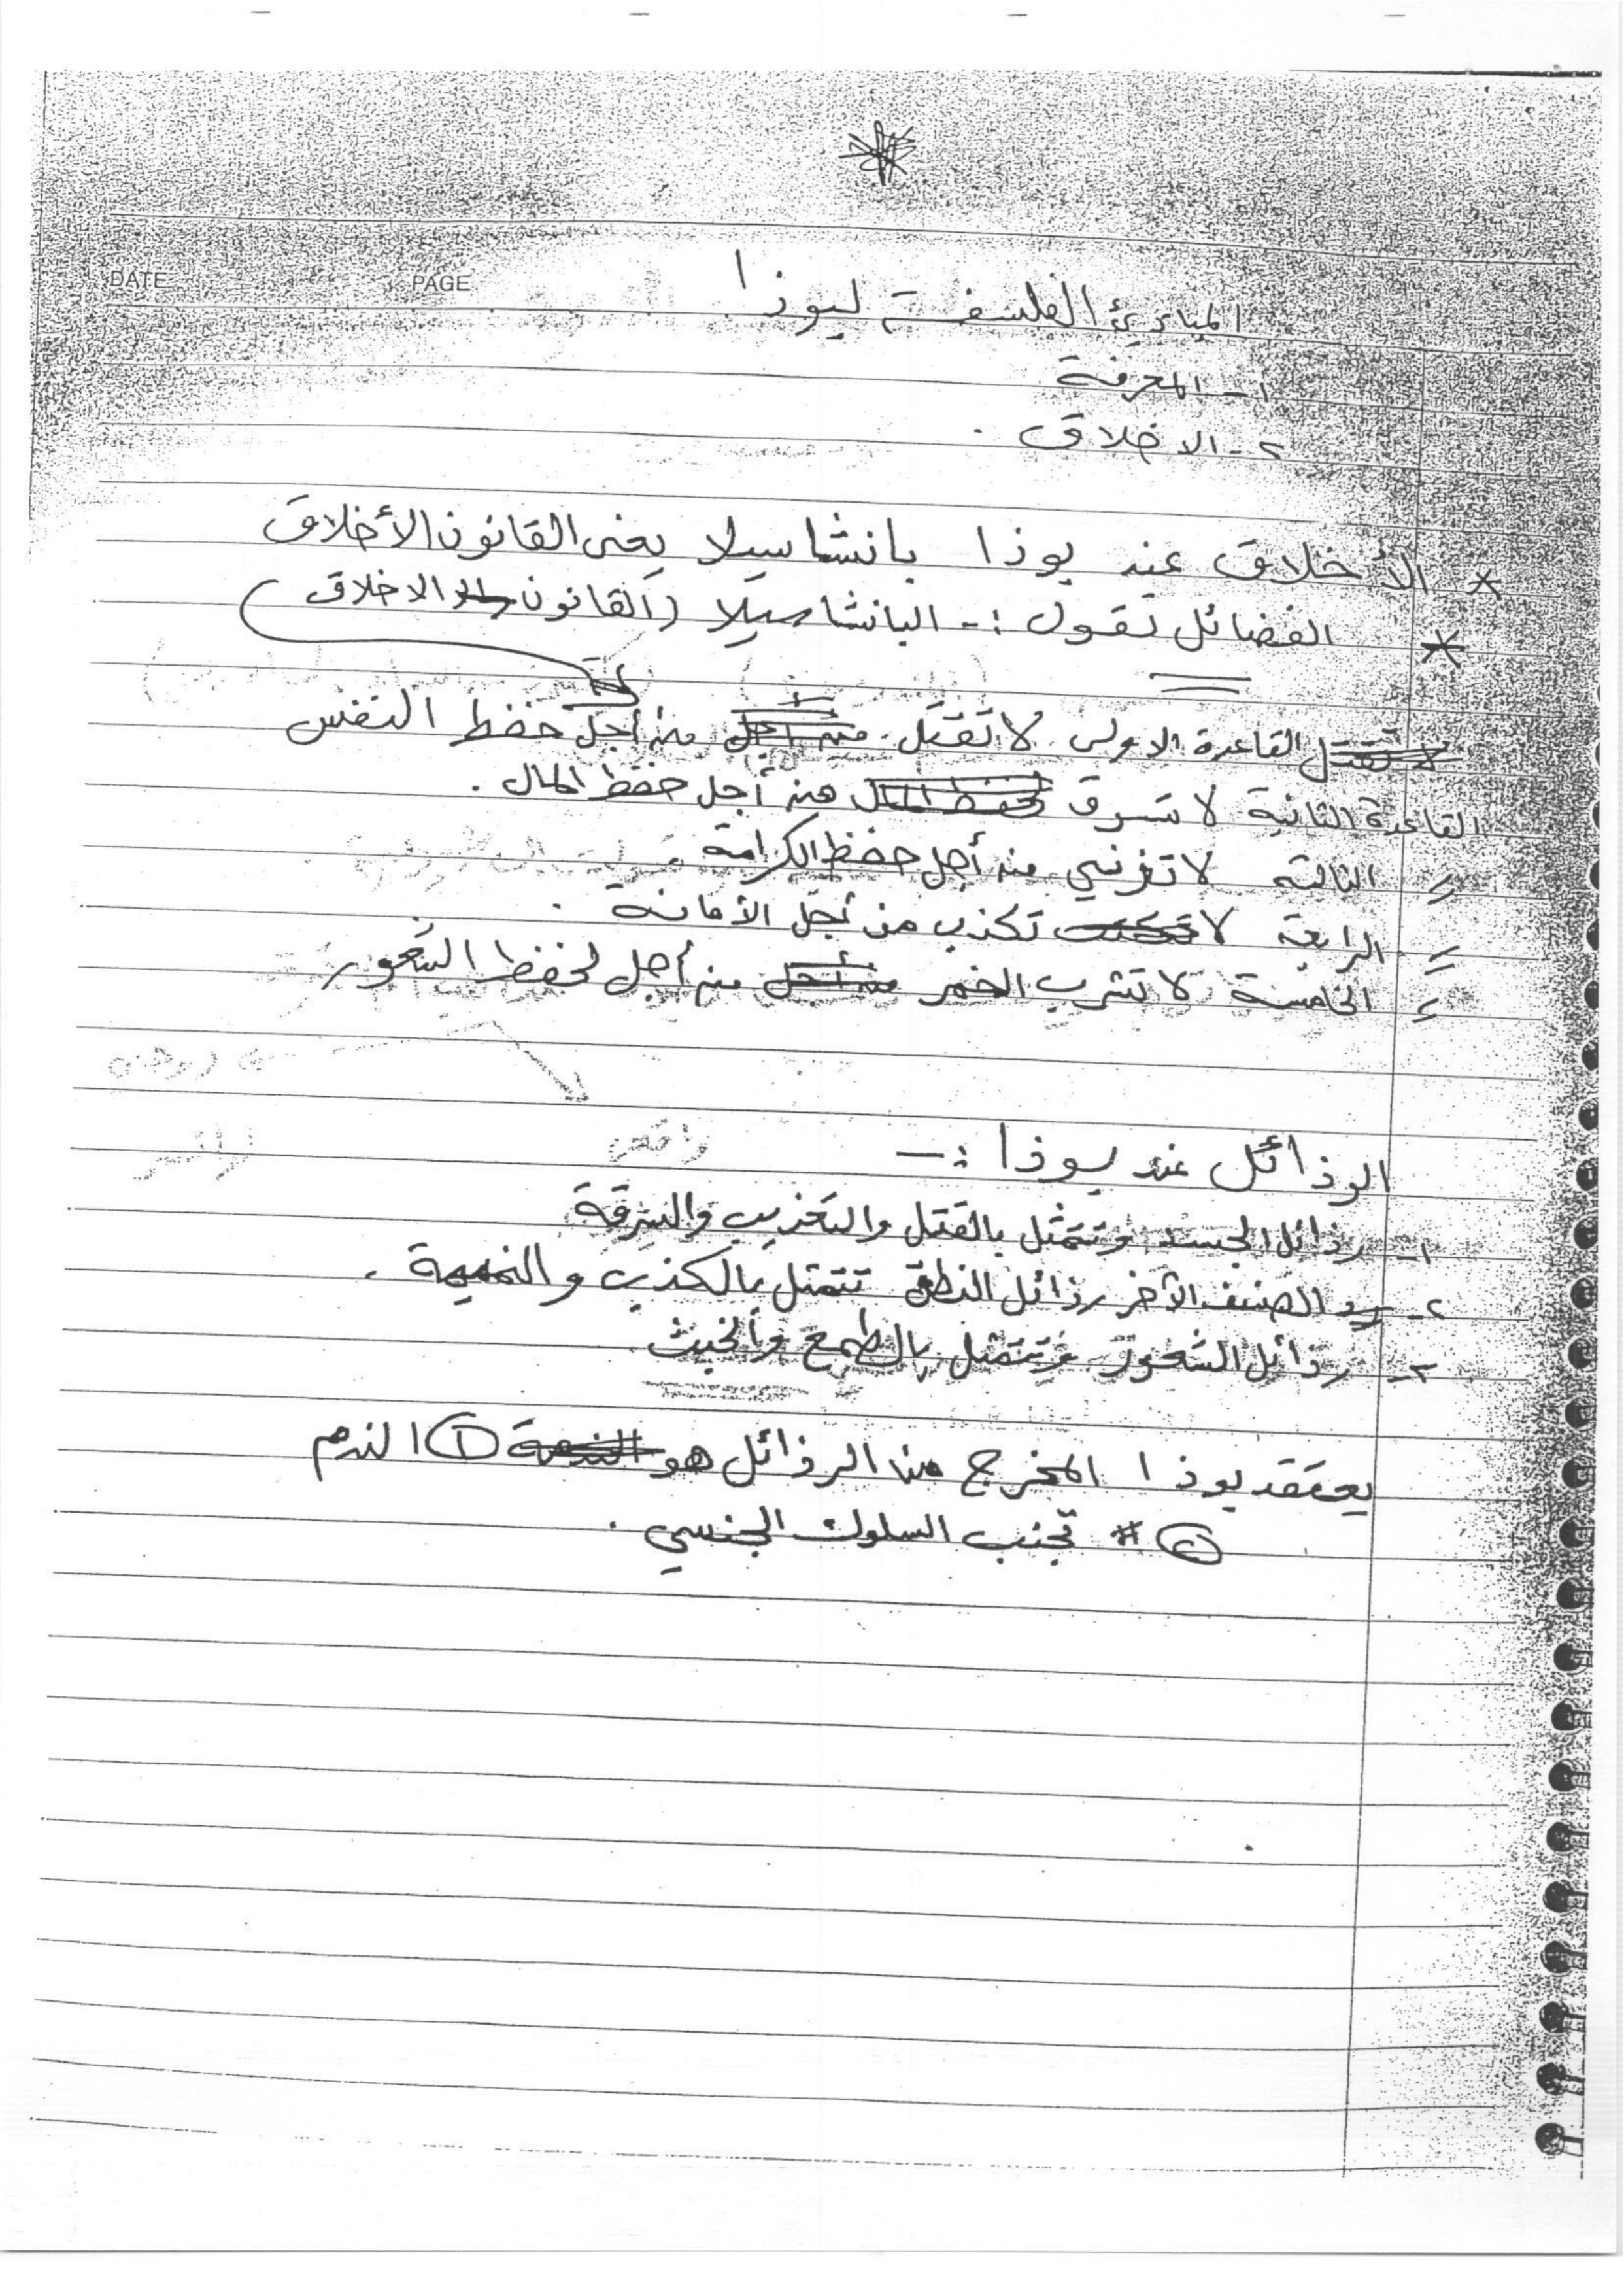 DATE PAGE
المبادئ الفلسفية لبوذا
١- المعرفة
٢- الاخلاق .
* الأخلاق عند بوذا بانشاسيلا يعني القانون الأخلاق
* الفضائل تقول :- البانشاسيلا (القانون الاخلاق)
القاعدة الاولى لا تقتل من أجل حفظ النفس
القاعدة الثانية لا تسرق من أجل حفظ المال .
= الثالثة لا تزني من أجل حفظ الكرامة
= الرابعة لا تكذب من أجل الأمانة .
= الخامسة لا تشرب الخمر من أجل لحفظ الشعور
الرذائل عند بوذا :-
١- رذائل الجسد وتتمثل بالقتل والتعذيب والسرقة
٢- الصنف الآخر رذائل النطق تتمثل بالكذب والنميمة .
٢- رذائل الشعور وتتمثل بالطمع والخبث
يعتقد بوذا المخرج من الرذائل هو ① الندم
② # تجنب السلوك الجنسي .